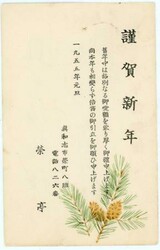 謹賀新年
舊年中は格別なる御愛顧を蒙り厚く御禮申上げます
尚本年も相變らず倍舊の御引立を御願ひ申上げます
一九五五年元旦
眞和志市榮町八班
電話八二六番
榮亭